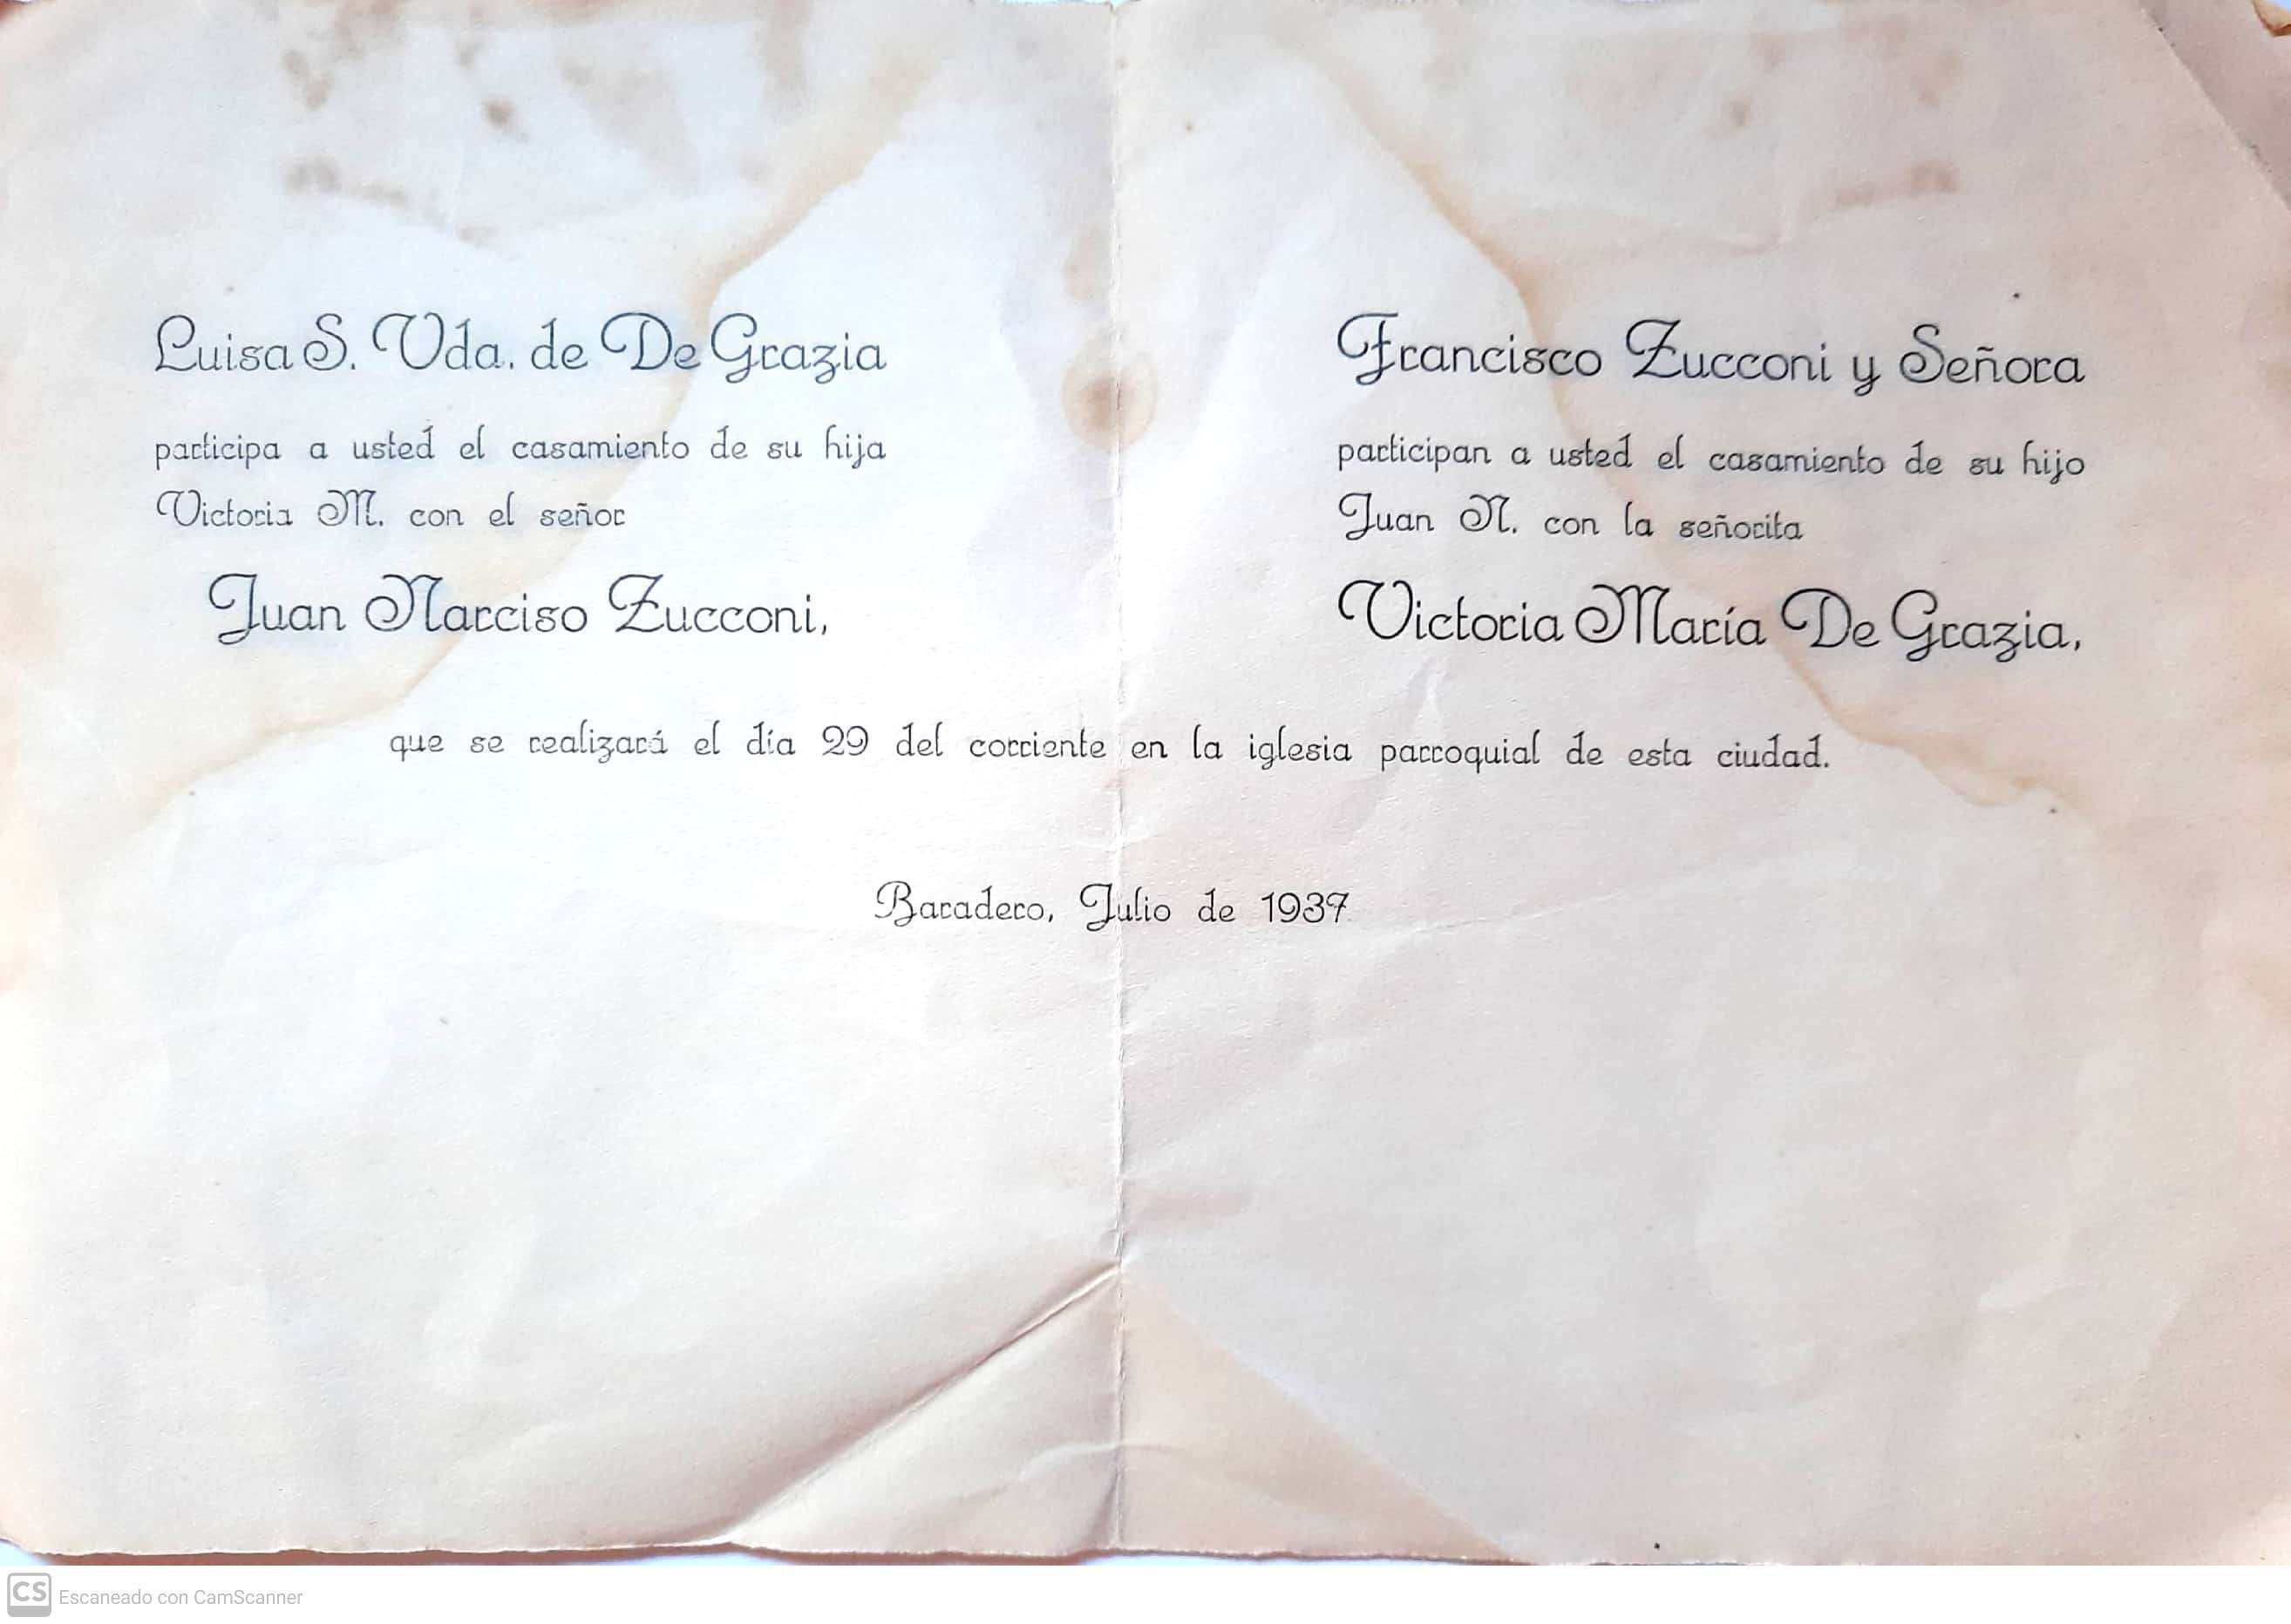 Luisa S. Vda. de De Grazia
participa a usted el casamiento de su hija
Victoria M. con el señor
Juan Narciso Zucconi,
Francisco Zucconi y Señora
participan a usted el casamiento de su hijo
Juan N. con la señorita
Victoria María De Grazia,
que se realizará el día 29 del corriente en la iglesia parroquial de esta ciudad.
Baradero, Julio de 1937
CS Escaneado con CamScanner